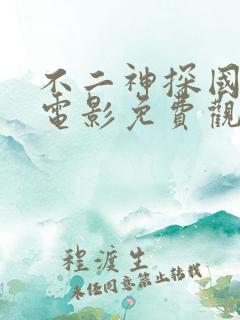 不二神探国
電影免費觀
程渡生
未经同意禁止转载